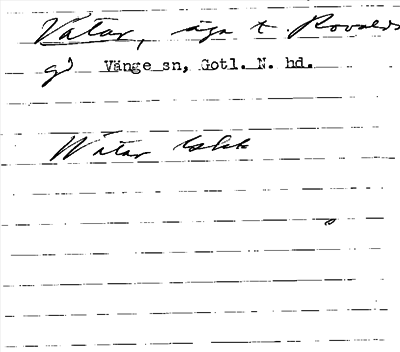 Vatar, äga t. Rovalds
gd Vänge sn, Gotl. N. hd.
Watar